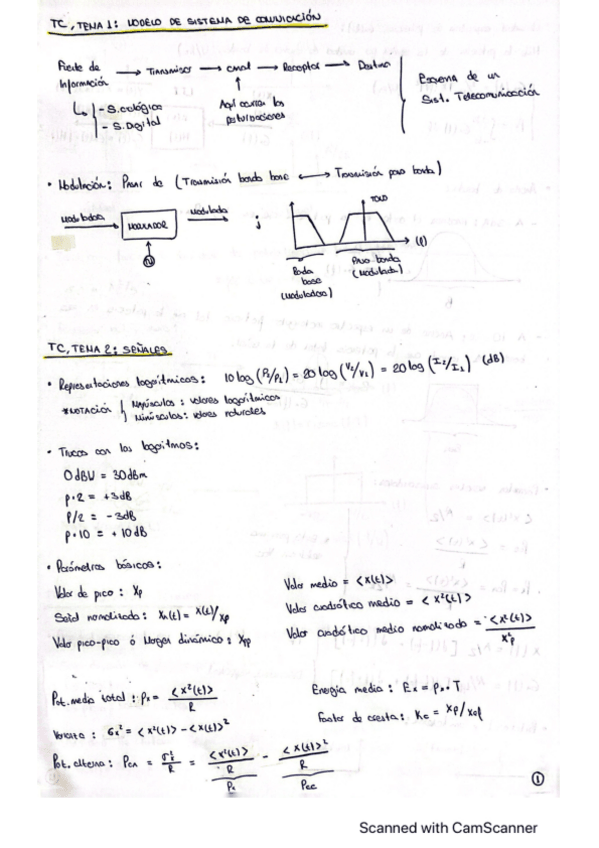 TC, TEMA 1: MODELO DE SISTEMA DE COMUNICACIÓN
Fuente de Información → Transmisor → Canal → Receptor → Destino
- S. Analógica
- S. Digital
Aquí ocurren las perturbaciones
Esquema de un Sist. Telecomunicación
• Modulación: Pasar de (Transmisión banda base ↔ Transmisión paso banda)
Moduladora
MODULADOR
Modulada
TONO
(f)
Banda base (Moduladora)
Paso banda (Modulada)
TC, TEMA 2: SEÑALES
• Representaciones logarítmicas: 10 log (P2/P1) = 20 log (V2/V1) = 20 log (I2/I1) (dB)
*NOTACIÓN { Mayúsculas: valores logarítmicos
Minúsculas: valores naturales
• Trucos con los logaritmos:
0 dBW = 30 dBm
p·2 = +3 dB
P/2 = -3dB
p·10 = +10 dB
• Parámetros básicos:
Valor de pico: Xp
Señal normalizada: Xn(t) = x(t)/xp
Valor pico-pico ó Margen dinámico: Xpp
Valor medio = <x(t)>
Valor cuadrático medio = <x²(t)>
Valor cuadrático medio normalizado = <x²(t)>/x²p
Pot. media total: px = <x²(t)>/R
Energía media: Ex = px·T
Varianza: σx² = <x²(t)> - <x(t)>²
Factor de cresta: Kc = xp/xef
Pot. alterna: PCA = σx²/R = <x²(t)>/R - <x(t)>²/R
Px
PCC
1
Scanned with CamScanner